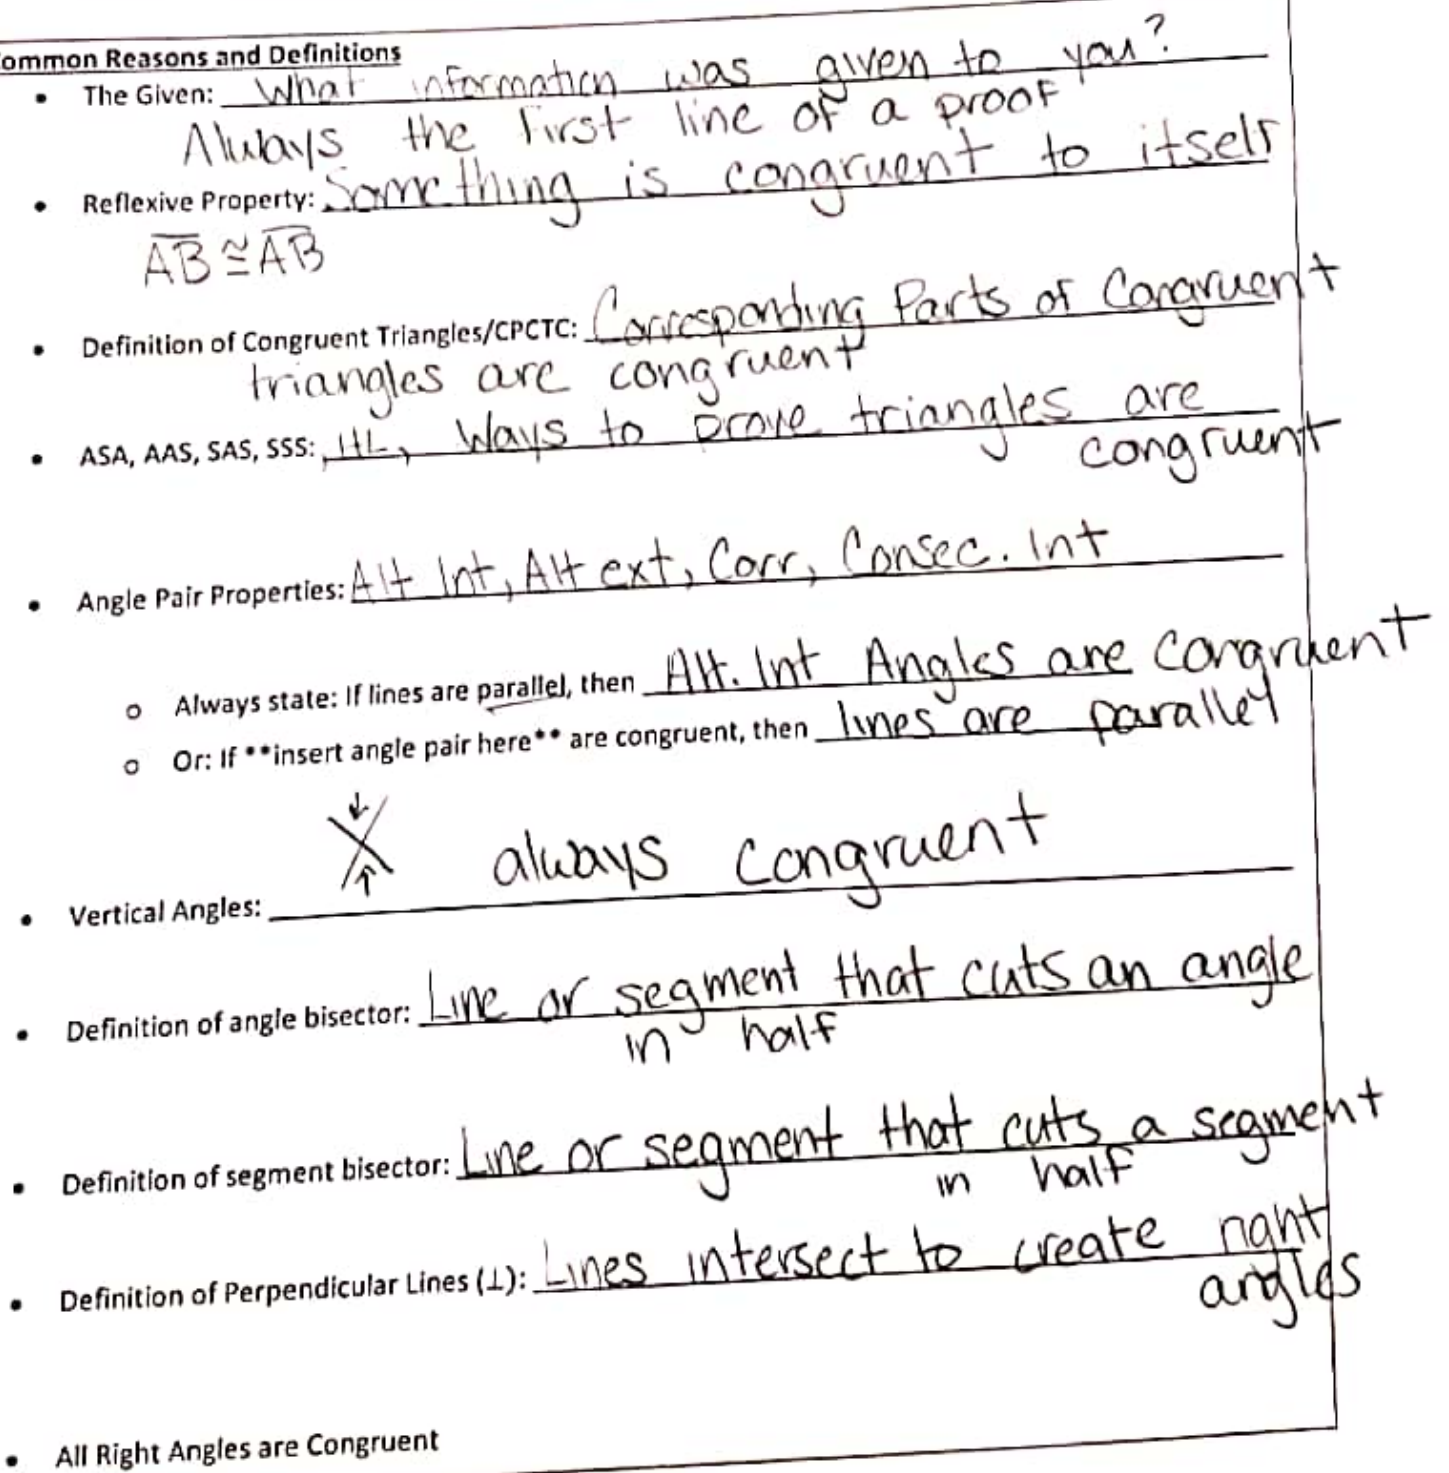 ommon Reasons and Definitions
• The Given: What information was given to you?
Always the first line of a proof
• Reflexive Property: Something is congruent to itself
AB ≅ AB
• Definition of Congruent Triangles/CPCTC: Corresponding Parts of Congruent
triangles are congruent
• ASA, AAS, SAS, SSS: , HL, Ways to prove triangles are
congruent
• Angle Pair Properties: Alt Int, Alt ext, Corr, Consec. Int
o Always state: If lines are parallel, then Alt. Int Angles are congruent
o Or: If **insert angle pair here** are congruent, then lines are parallel
• Vertical Angles: always congruent
• Definition of angle bisector: Line or segment that cuts an angle
in half
• Definition of segment bisector: Line or segment that cuts a segment
in half
• Definition of Perpendicular Lines (⊥): Lines intersect to create right
angles
• All Right Angles are Congruent